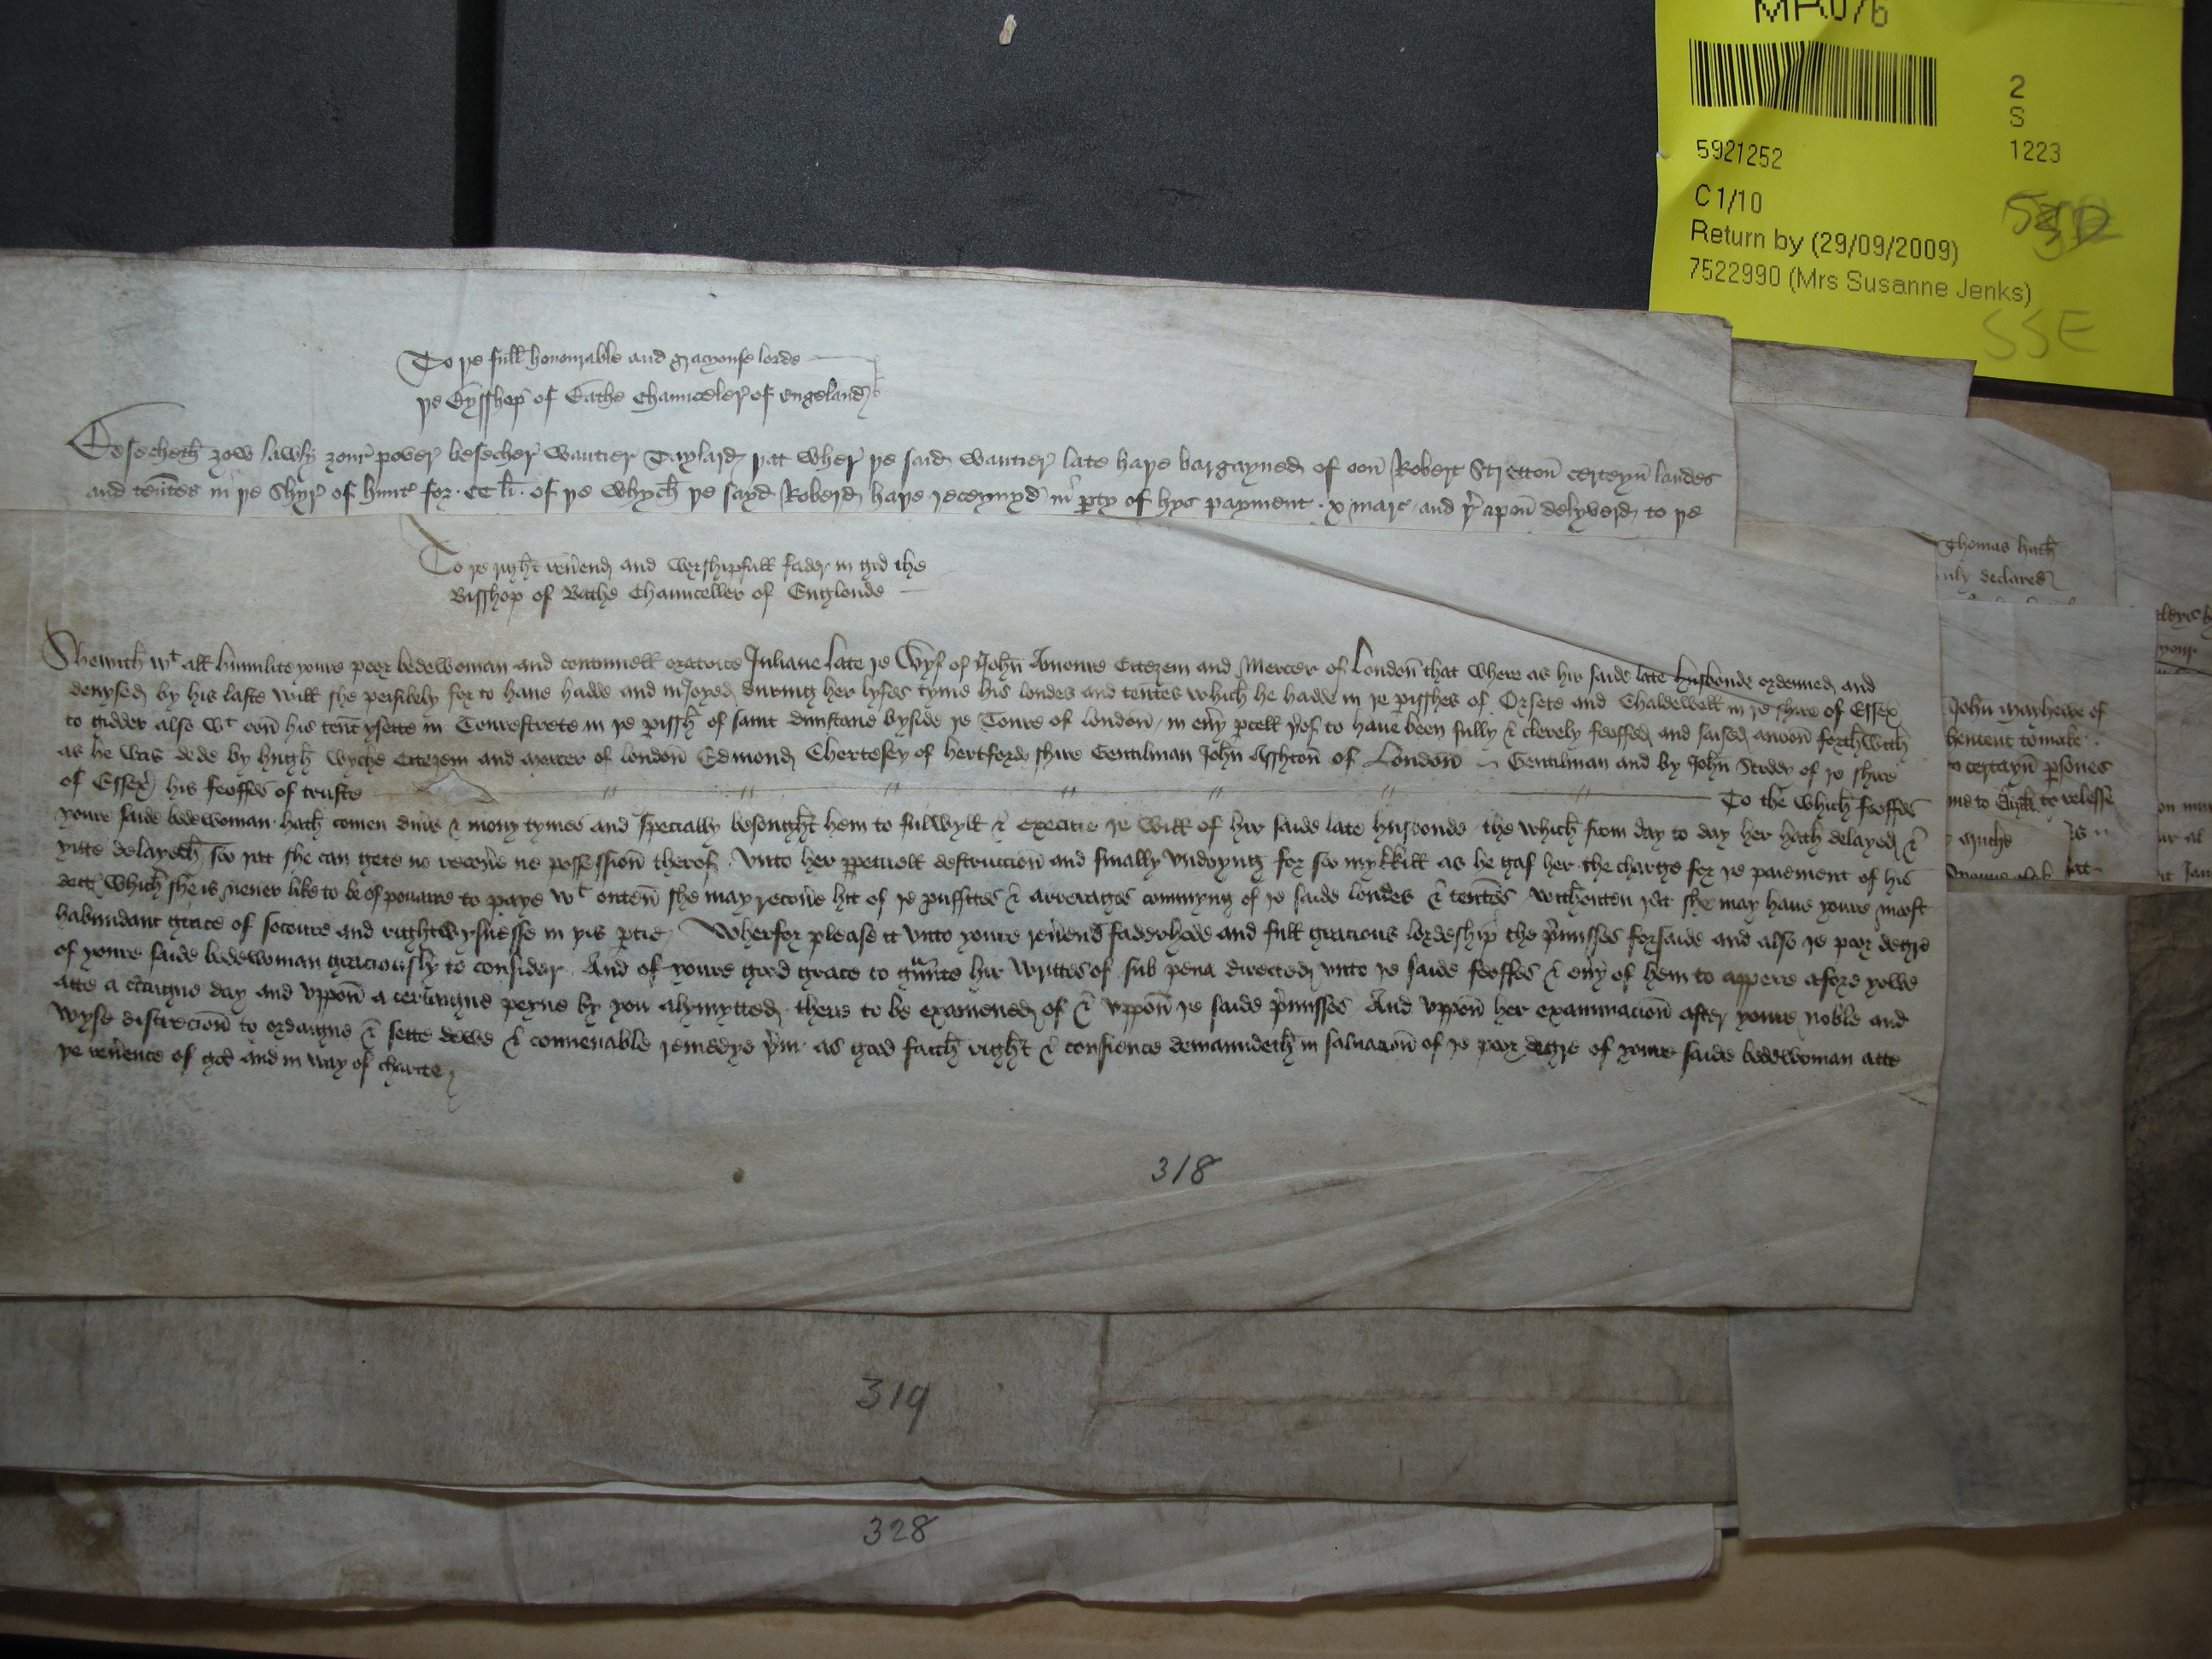 MR076
2
S
5921252
1223
C 1/10
Return by (29/09/2009)
7522990 (Mrs Susanne Jenks)
SSE
To þe full honourable and gracyouse lorde
þe Bysshop of Bathe Chaunceler of Engeland
Besecheth zow lawly zour pover besecher Wautier Taylard þat wher þe said Wautier late haþe bargayned of oon Robert Stretton certeyn landes
and tentes in þe Shyr of Hunt for CC li. of þe whych þe sayd Roberd haþe receyuyd in party of hys payment x marc and þer apon delyverd to þe
To þe right reuerend and worshipfull fader in god the
Bisshop of Bathe Chaunceller of Englonde
Shewith wt all humilite youre poor bedewoman and contynuell oratrice Juliane late þe Wyf of John Amoure Citezein and Mercer of London that where as hir saide late husbonde ordeined and
deuysed by his laste will she pesibely for to haue hadde and inJoyed during her lyfes tyme his londes and tentes which he hadde in þe pisshes of Orsete and Chaldewell in þe shire of Essex
to gidder also wt oon his tent ysette in Tourestrete in þe pissh of saint dunstane byside þe Toure of london in euery pcell þerof to haue been fully & clerely feoffed and saised anoon forthwith
as he was dede by hugh Wyche Citezein and mercer of london Edmond Chertesey of hertford shire Gentilman John Asshton of London Gentilman and by John of þe shire
of Essex his feoffes of truste To the which feoffes
youre saide bedewoman hath comen diuers & mony tymes and specially besought hem to fulwyll & execute þe will of hir saide late husbonde the which from day to day her hath delayed &
yitte delayeth soo þat she can gete no recouere ne possession therof Vnto her ppetuell destruccion and finally vndoyng for soo mykkill as he gaf her the charge for þe paiement of his
dett which she is neuer like to be of pouaire to paye wt outen she may recouere hit of þe proffites & arrerages commyng of þe saide londes & tentes Withouten þat she may haue youre moost
habundant grace of socoure and rightwysnesse in þis ptie Wherfor please it vnto youre reuerend faderhede and full gracious lordeship the pmisses forsaide and also þe poor degre
of youre saide bedewoman graciously to consider And of youre good grace to graunte hir writtes of sub pena directed vnto þe saide feoffes & euery of hem to appere afore yowe
atte a certaigne day and vppon a certaigne peyne by you alymytted there to be examened of & vppon þe saide pmisses And vppon her examinacion after youre noble and
wyse discrecion to ordaigne & sette dewe & conuenable remedye þerin as good faith right & consience demaundeth in saluacion of þe poor degre of youre saide bedewoman atte
þe reuerence of god and in way of charite
318
319
328
Thomas hath
declared
John Mathewe of
to make
certayn psones
me to to relesse